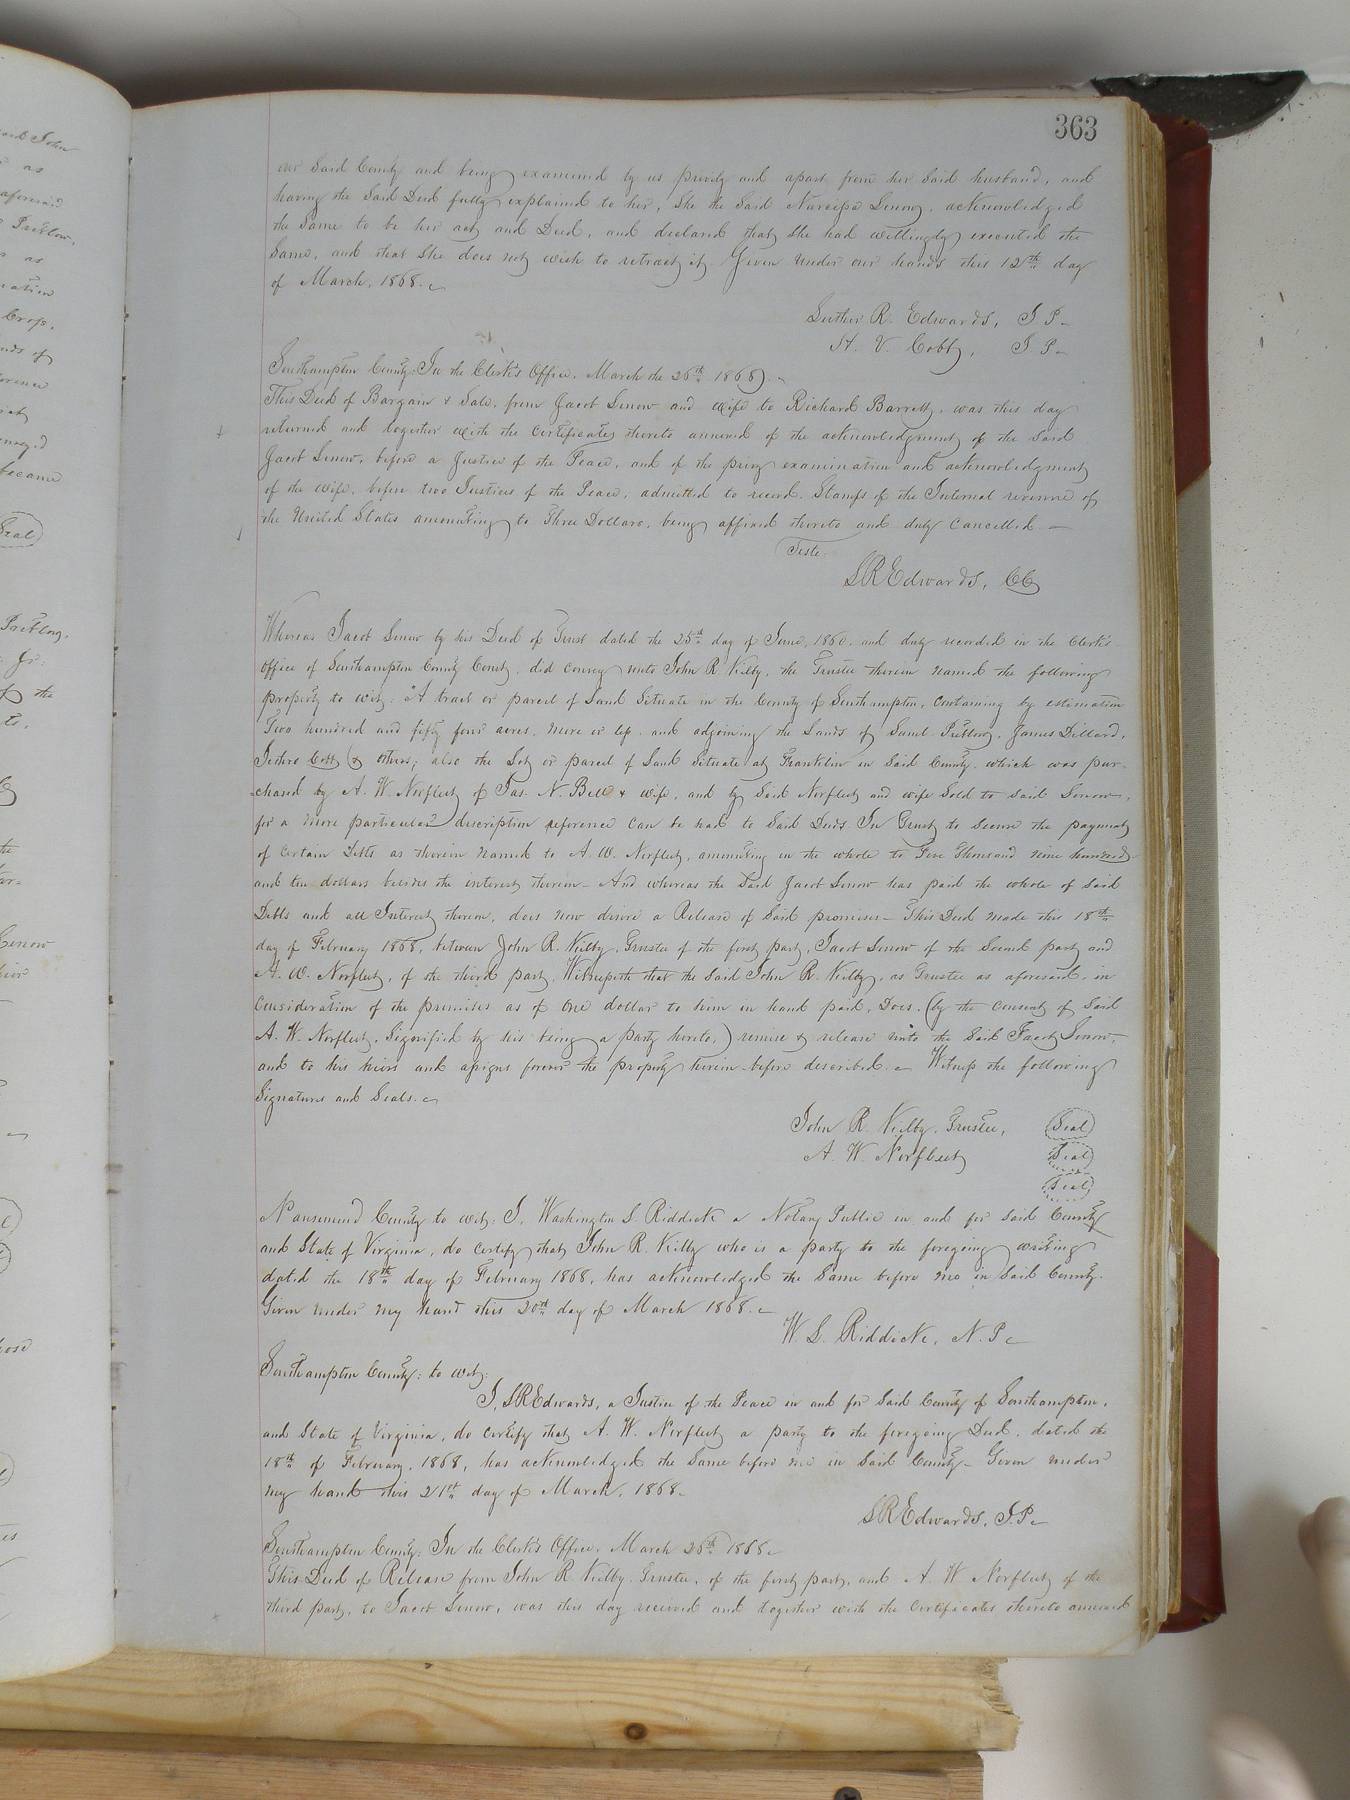 363
our Said County and being examined by us privily and apart from her Said husband, and
having the Said Deed fully explained to her, She the Said Narcissa Lenow, acknowledged
the Same to be her act and Deed, and declared that She had willingly executed the
Same, and that She does not wish to retract it, Given under our hands this 12th day
of March, 1868.
Luther R. Edwards, J P
H. V. Cobb, J P
Southampton County: In the Clerk's Office, March the 26th 1868.
This Deed of Bargain & Sale, from Jacob Lenow and wife to Richard Barrett, was this day
returned and together with the Certificates thereto annexed of the acknowledgment of the Said
Jacob Lenow, before a Justice of the Peace, and of the privy examination and acknowledgment
of the wife, before two Justices of the Peace, admitted to record. Stamps of the Internal revenue of
the United States amounting to Three Dollars, being affixed thereto and duly Cancelled
Teste
LREdwards, CC
Whereas Jacob Lenow by his Deed of Trust dated the 25th day of June, 1860. and duly recorded in the Clerk's
Office of Southampton County Court, did convey unto John R Kilby, the Trustee therein named the following
property to wit: "A tract or parcel of Land Situate in the County of Southampton, Containing by estimation
Two hundred and fifty four acres, more or less and adjoining the Lands of Saml. Pretlow, James Dillard,
Jethro Cobb & others; also the Lot or parcel of Land Situate at Franklin in Said County, which was pur-
chased by A. W. Norfleet of Jas. N. Bell & wife, and by Said Norfleet and wife Sold to Said Lenow,
for a more particular description reference can be had to Said Deeds In Trust to Secure the payment
of Certain Debts as therein named to A. W. Norfleet, amounting in the whole to Five Thousand nine hundred
and ten dollars besides the interest therein - And whereas the Said Jacob Lenow has paid the whole of Said
Debts and all Interest thereon, does now desire a Release of Said premises - This Deed made this 18th
day of February 1868, between John R. Kilby, Trustee of the first part, Jacob Lenow of the Second part and
A. W. Norfleet, of the third part, Witnesseth that the Said John R. Kilby, as Trustee as aforesaid, in
Consideration of the premises as of One dollar to him in hand paid, Does, (by the Consent of Said
A. W. Norfleet, Signified by his being a party hereto,) remise & release unto the Said Jacob Lenow,
and to his heirs and assigns forever the property herein before described. Witness the following
Signatures and Seals.
John R. Kilby, Trustee, Seal
A. W. Norfleet Seal
Seal
Nansemond County to wit: I, Washington L. Riddick a Notary Public in and for Said County
and State of Virginia, do certify that John R. Kilby who is a party to the foregoing writing
dated the 18th day of February 1868, has acknowledged the Same before me in Said County.
Given under my hand this 20th day of March 1868.
W L. Riddick, N. P
Southampton County: to wit:
I, LREdwards, a Justice of the Peace in and for Said County of Southampton,
and State of Virginia, do certify that A. W. Norfleet a party to the foregoing Deed, dated the
18th of February, 1868, has acknowledged the Same before me in Said County - Given under
my hand this 21st day of March, 1868.
LREdwards, J.P
Southampton County: In the Clerk's Office, March 26th 1868.
This Deed of Release from John R Kilby, Trustee, of the first part, and A. W Norfleet of the
third part, to Jacob Lenow, was this day received and together with the Certificates thereto annexed